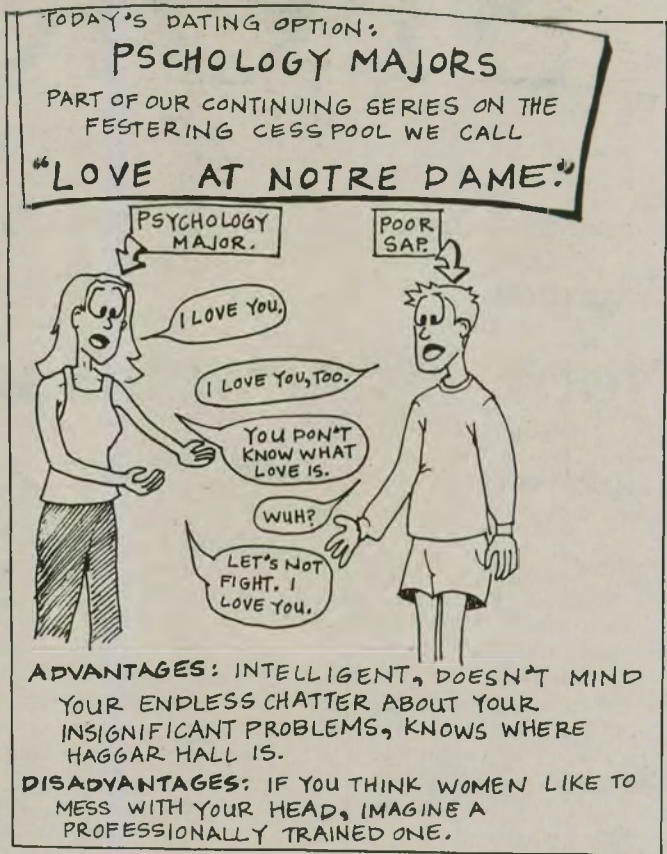 TODAY'S DATING OPTION:
PSCHOLOGY MAJORS
PART OF OUR CONTINUING SERIES ON THE
FESTERING CESSPOOL WE CALL
"LOVE AT NOTRE DAME."
PSYCHOLOGY
MAJOR.
POOR
SAP.
I LOVE YOU.
I LOVE YOU, TOO.
YOU DON'T
KNOW WHAT
LOVE IS.
WUH?
LET'S NOT
FIGHT. I
LOVE YOU.
ADVANTAGES: INTELLIGENT, DOESN'T MIND
YOUR ENDLESS CHATTER ABOUT YOUR
INSIGNIFICANT PROBLEMS, KNOWS WHERE
HAGGAR HALL IS.
DISADVANTAGES: IF YOU THINK WOMEN LIKE TO
MESS WITH YOUR HEAD, IMAGINE A
PROFESSIONALLY TRAINED ONE.